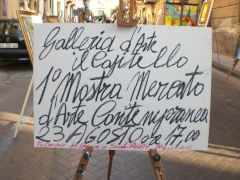 Galleria d'Arte
il Capitello
1° Mostra Mercato
d'Arte Contemporanea
23 AGOSTO ore 17.00